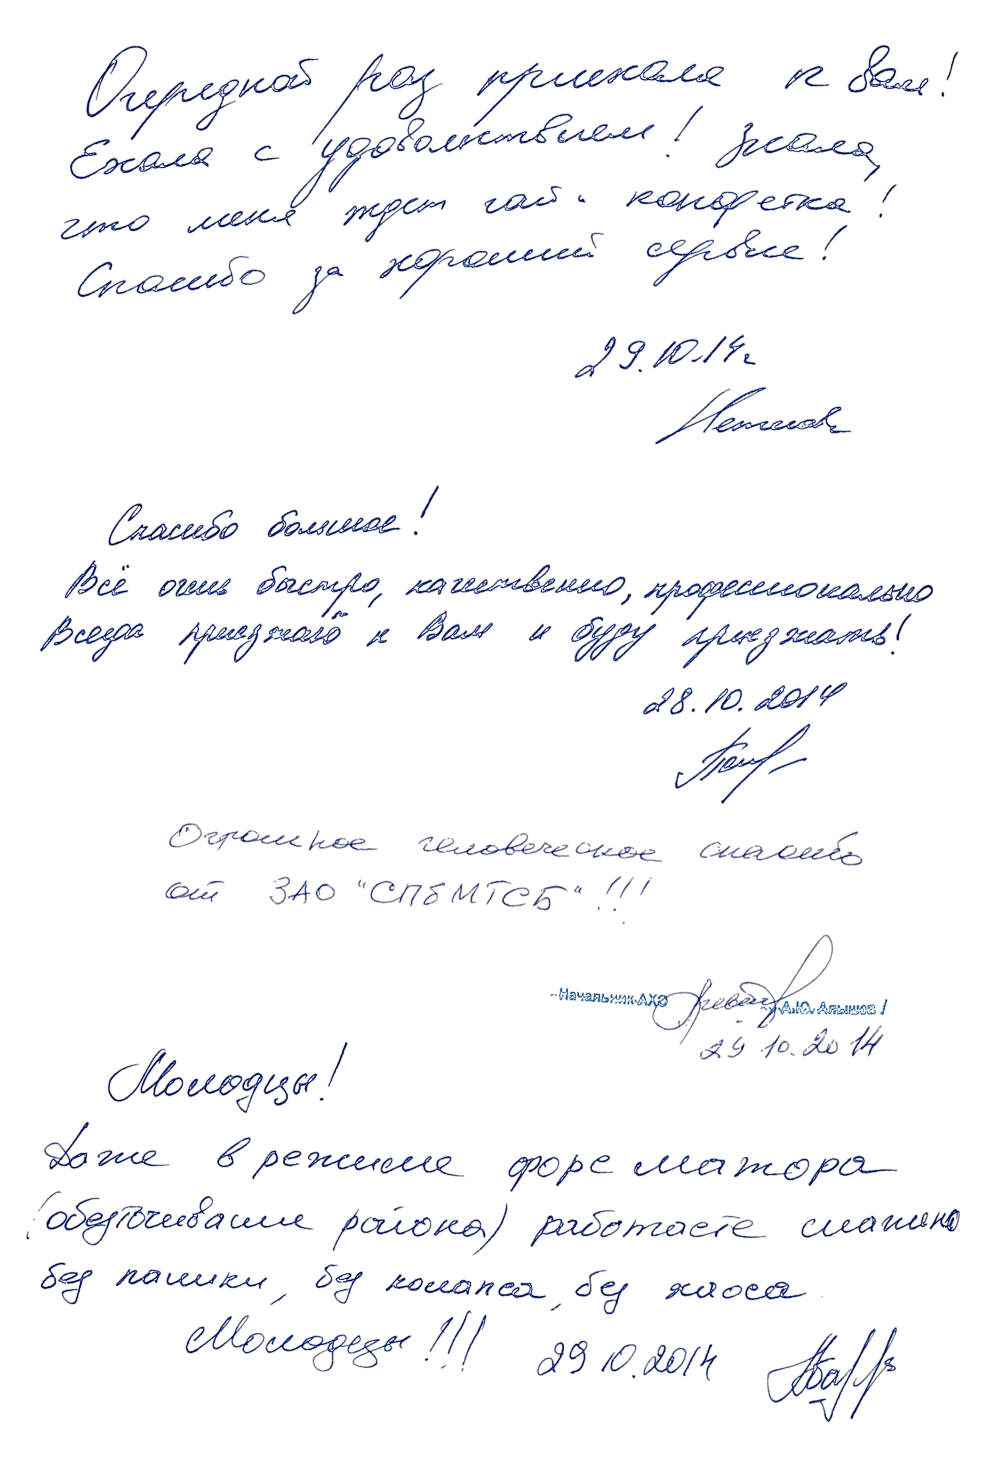 Очередной раз приехала к Вам!
Ехала с удовольствием! Знала,
что меня ждет чай и конфетка!
Спасибо за хороший сервис!
29.10.14г
Спасибо большое!
Всё очень быстро, качественно, профессионально
Всегда приезжаю к Вам и буду приезжать!
28.10.2014
Огромное человеческое спасибо
от ЗАО "СПбМТСБ"!!!
Начальник АХО А.Ю. Алышев /
29 10.2014
Молодцы!
Даже в режиме форс мажора
(обесточивание района) работаете слажено
без паники, без колапса, без хаоса.
Молодцы!!! 29 10.2014